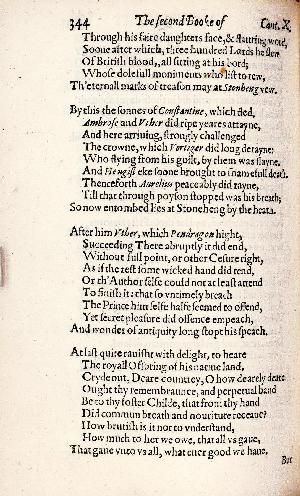 344 The second Booke of Cant. X.
Through his faire daughters face, & flattring word,
Soone after which, three hundred Lords he slew
Of British blood, all sitting at his bord;
Whose dolefull moniments who list to rew,
Th'eternall marks of treason may at Stonheng vew.
By this the sonnes of Constantine, which fled,
Ambrose and Vther did ripe yeares attayne,
And here arriuing, strongly challenged
The crowne, which Vortiger did long detayne:
Who flying from his guilt, by them was slayne,
And Hengist eke soone brought to shamefull death.
Thenceforth Aurelius peaceably did rayne,
Till that through poyson stopped was his breath;
So now entombed lies at Stoneheng by the heath.
After him Vther, which Pendragon hight,
Succeeding There abruptly it did end,
Without full point, or other Cesure right,
As if the rest some wicked hand did rend,
Or th'Author selfe could not at least attend
To finish it: that so vntimely breach
The Prince him selfe halfe seemed to offend,
Yet secret pleasure did offence empeach,
And wonder of antiquity long stopt his speach.
At last quite rauisht with delight, to heare
The royall Ofspring of his natiue land,
Cryde out, Deare countrey, O how dearely deare
Ought thy remembraunce, and perpetuall band
Be to thy foster Childe, that from thy hand
Did commun breath and nouriture receaue?
How brutish is it not to vnderstand,
How much to her we owe, that all vs gaue,
That gaue vnto vs all, what euer good we haue.
But